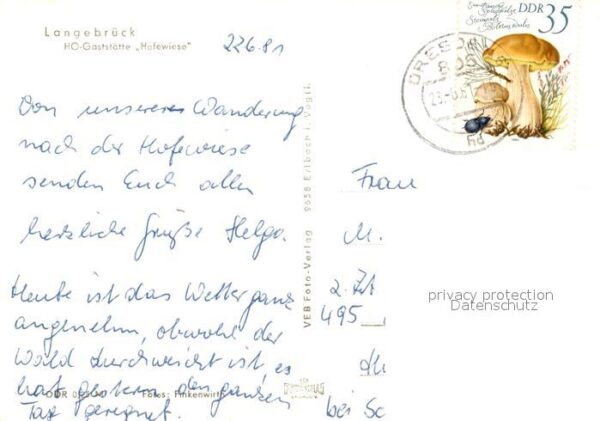 Langebrück
HO-Gaststätte „Hofewiese"
22.6.81
Von unserer Wanderung
nach der Hofewiese
senden Euch allen
herzliche Grüße Helga.
Heute ist das Wetter ganz
angenehm, obwohl der
Wald durchweicht ist, es
hat gestern den ganzen
Tag geregnet.
Fotos: Finkenwirth
VEB Foto-Verlag 9658 Erlbach i. Vogtl.
DDR 35
Steinpilz
DRESDEN
Frau
M.
2. Zt
495
bei Sc
privacy protection
Datenschutz